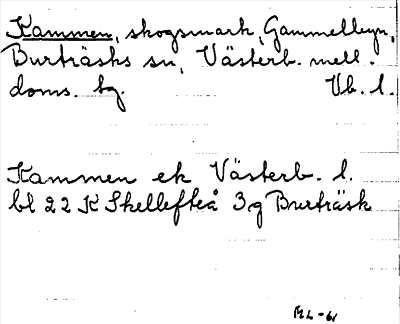 Kammen, skogsmark, Gammelbyn,
Burträsks sn, Västerb. mell.
doms. bg. Vb. l.
Kammen ek Västerb. l.
bl 22 K Skellefteå 3g Burträsk
ML-61